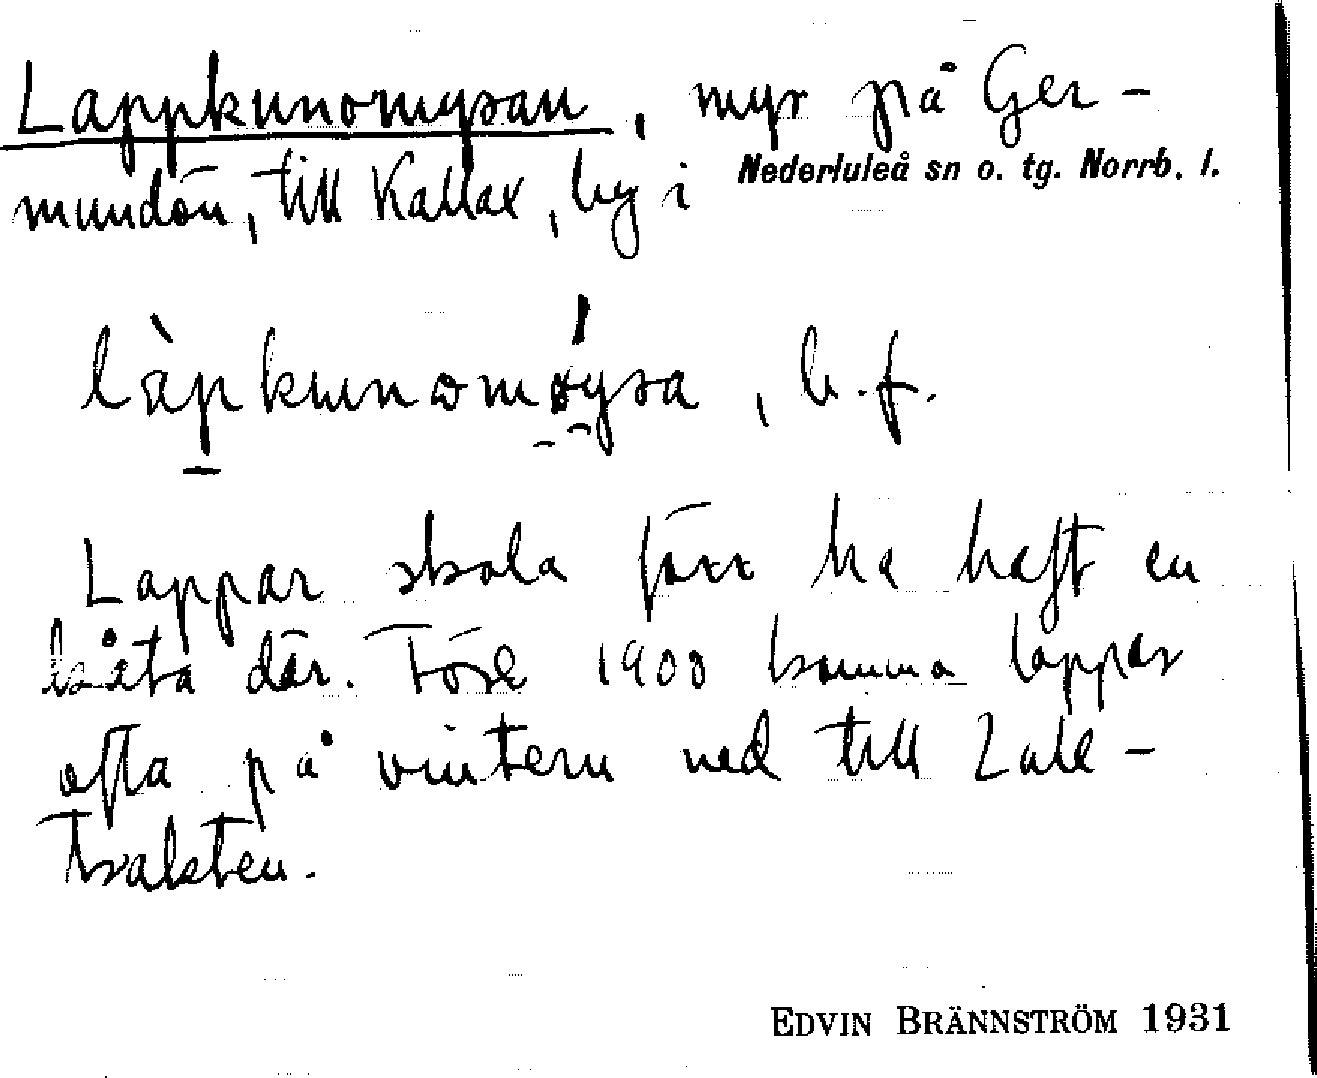 Lappkunomyran, myr på Ger-
mundön, till Kallax, by i Nederluleå sn o. tg. Norrb. l.
làpkunomøyra, b.f.
Lappar skola förr ha haft en
kåta där. Före 1900 komma lappar
ofta på vintern ned till Lule-
trakten.
EDVIN BRÄNNSTRÖM 1931